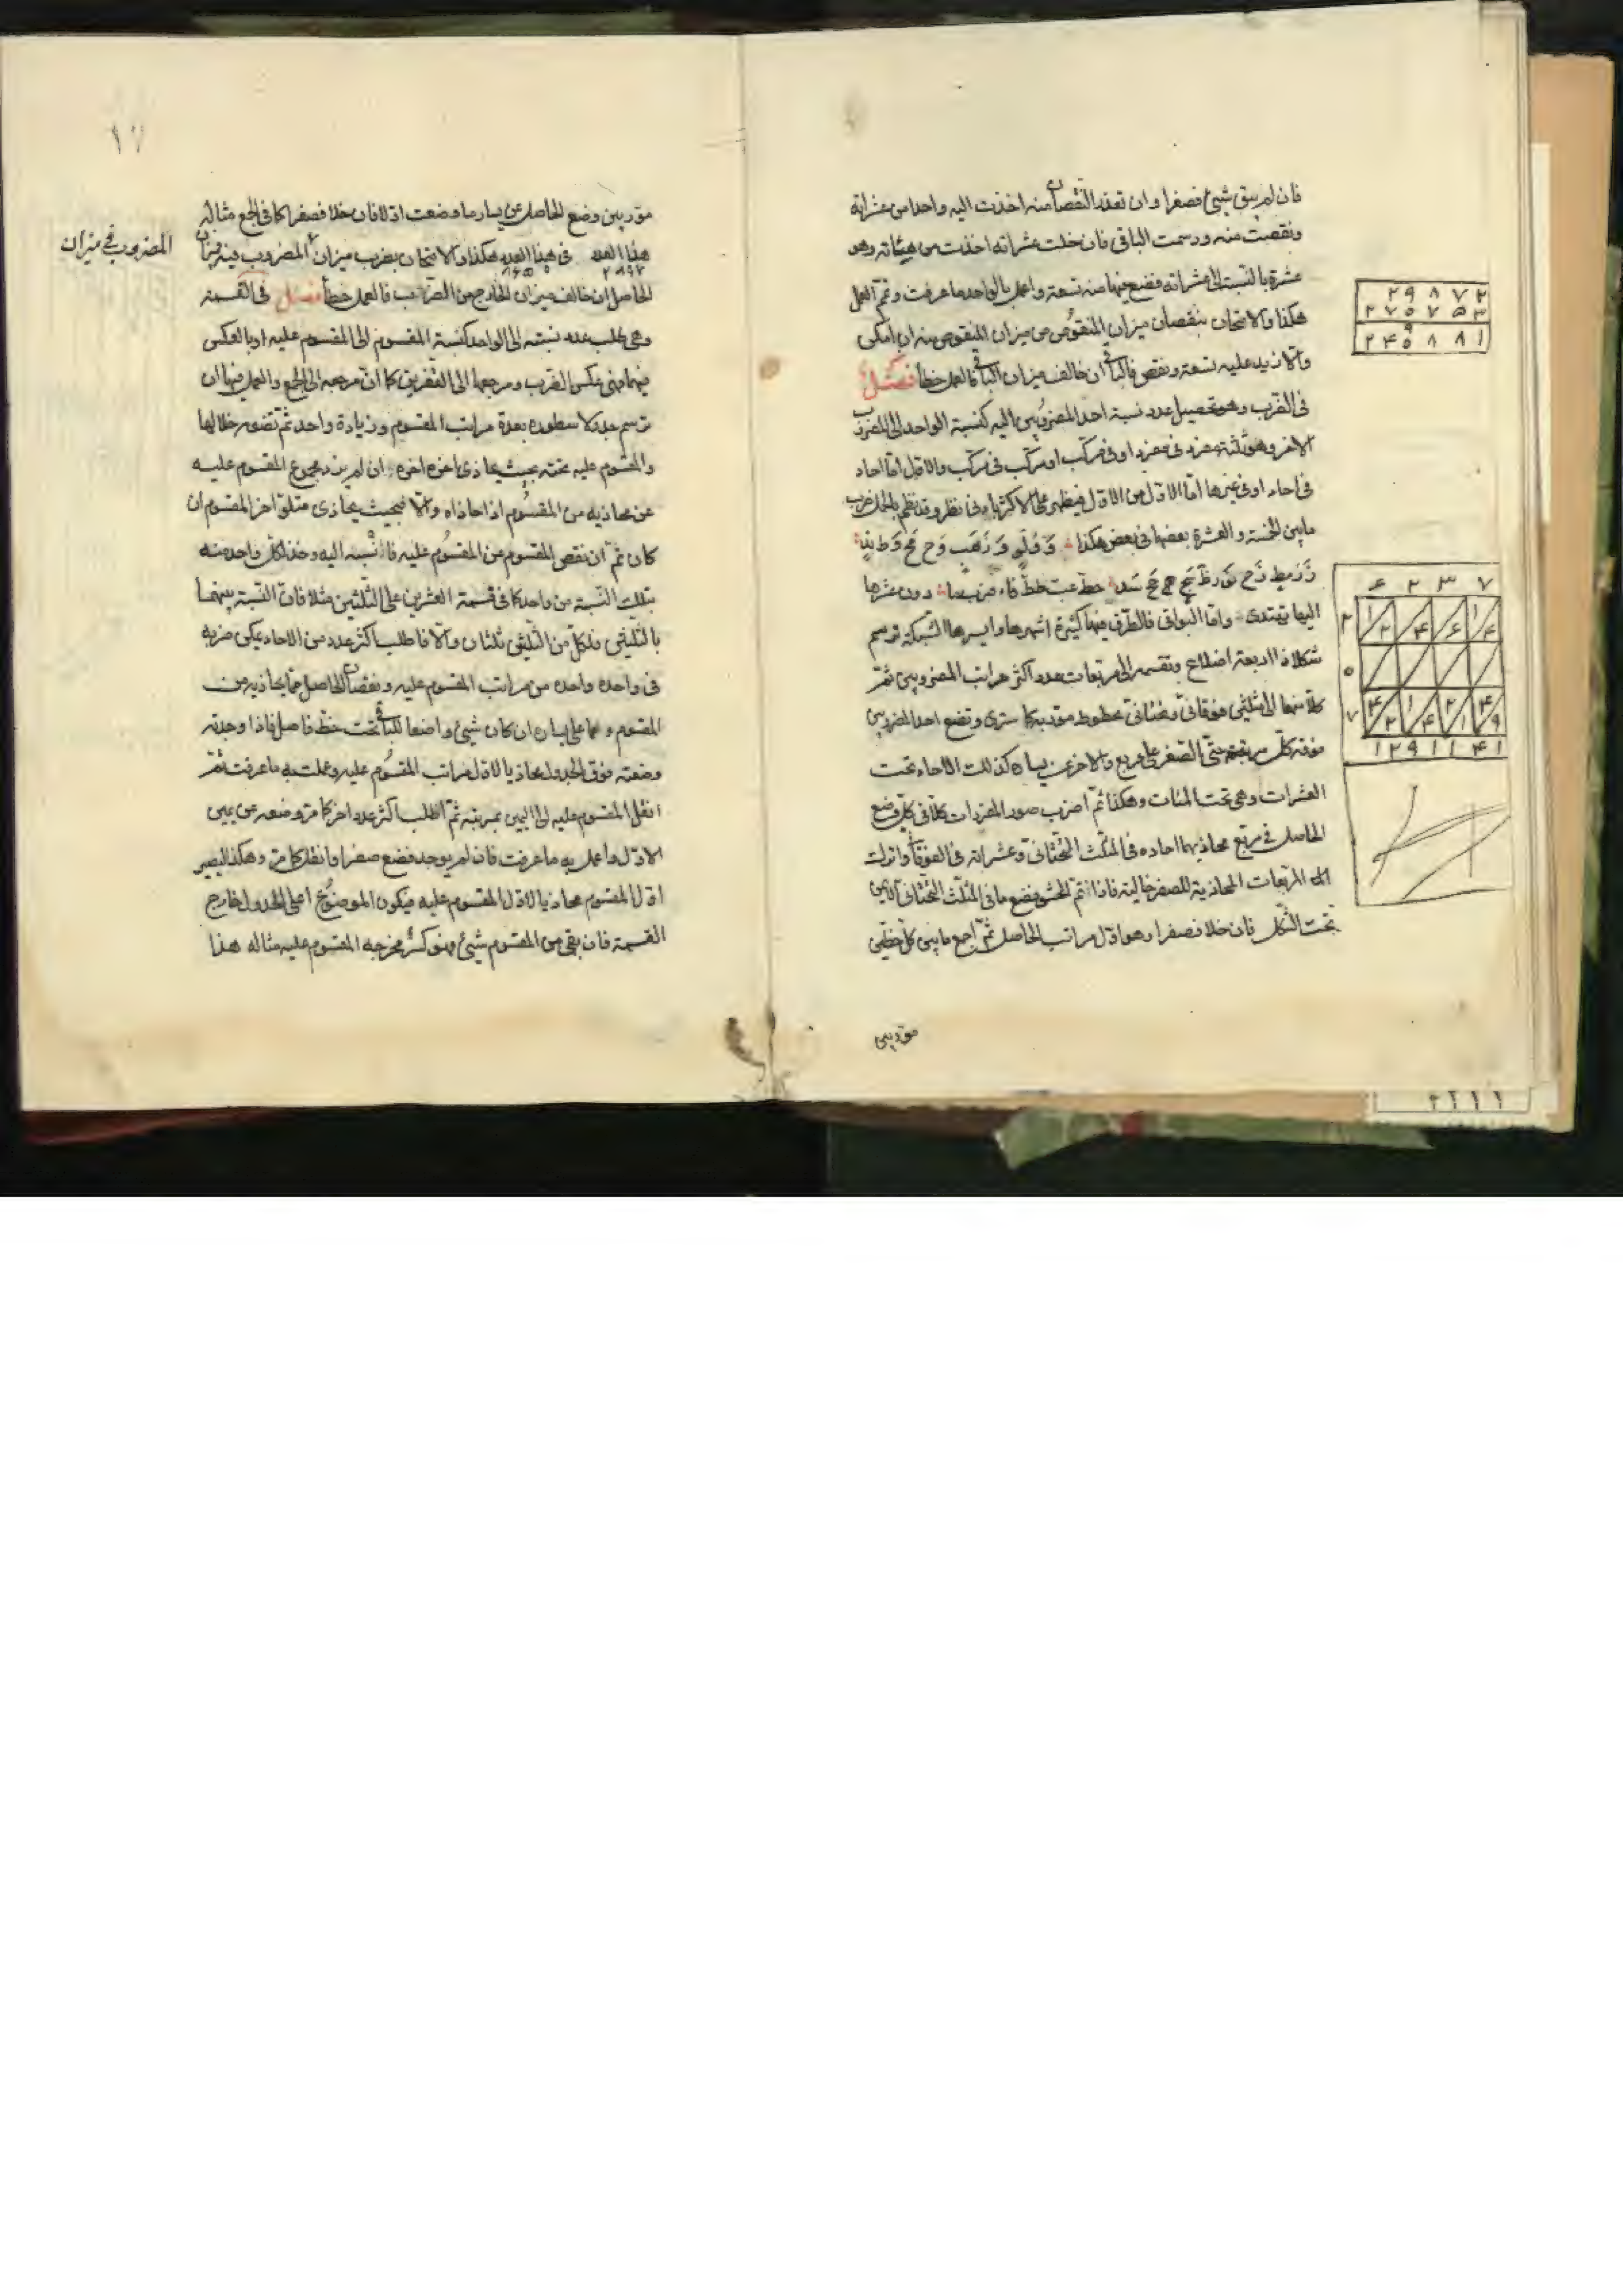 فان لم يبق شيئ فصفرا وان تعذر النقصان منه اخذت اليه واحدا من عشراته
ونقصت منه ورسمت الباقى فان خلت عشراته اخذت من مئاته وهو
عشرة بالنسبة الى عشراته فضع فيها منه تسعة واعمل بالواحد ما عرفت وتمم العمل
هكذا والامتحان بنقصان ميزان المنقوص من ميزان المنقوص منه ان امكن
والا زيد عليه تسعة ونقص فالباقى ان خالف ميزان الباقى فالعمل خطأ فصل
فى الضرب وهو تحصيل عدد نسبة احد المضروبين اليه كنسبة الواحد الى المضروب
الاخر وهو ثلثة مفرد فى مفرد او فى مركب او مركب فى مركب والاول اما احاد
فى احاد او فى غيرها اما الاول من الاول فيظهر على الاكثر بادنى نظر وقد نظم بالجمل ضرب
ما بين الخمسة والعشرة بعضها فى بعض هكذا
دون عشرها
اليها تهتدى واما البواقى فالطرق فيها كثيرة اشهرها وايسرها الشبكة ترسم
شكلا ذا اربعة اضلاع وتقسمه الى مربعات بعدد اكثر مراتب المضروبين ثم
كلا منها الى مثلثين فوقانى وتحتانى بخطوط موربة كما سترى وتضع احد المضروبين
فوقه كل مرتبة حتى الصفر على مربع والاخر عن يساره كذلك الاحاد تحت
العشرات وهى تحت المئات وهكذا ثم اضرب صور المفردات كلا فى كل وضع
الحاصل فى مربع محاذيهما احاده فى المثلث التحتانى وعشراته فى الفوقانى واترك
المربعات المحاذية للصفر خالية فاذا تم الحشو فضع ما فى المثلث التحتانى الايمن
تحت الشكل فان خلا فصفرا وهو اول مراتب الحاصل ثم اجمع ما بين كل خطين
موربين
۲ ۹ ۸ ۷ ۲
۲ ۴ ۵ ۸ ۸ ۱
۶ ۲ ۳ ۷
۱ ۲ ۹ ۱ ۱ ۴ ۱
۱۷
موربين وضع الحاصل عن يسار ما وضعت اولا فان خلا فصفرا كما فى الجمع مثاله
هذا العدد ۲۸۹۷ فى هذا العدد هكذا والامتحان بضرب ميزان المضروب فيه فميزان
المضروب فى ميزان
الحاصل ان خالف ميزان الخارج من الضرب فالعمل خطأ فصل فى القسمة
وهى طلب عدد نسبته الى الواحد كنسبة المقسوم الى المقسوم عليه او بالعكس
فيهما فهى عكس الضرب ومرجعها الى التفريق كما ان مرجعه الى الجمع والعمل فيها ان
ترسم جدولا سطوره بعدة مراتب المقسوم وزيادة واحد ثم تضعه خلالها
والمقسوم عليه تحته بحيث يحاذى اخره اخره ان لم يزد مجموع المقسوم عليه
عن محاذيه من المقسوم اذا حاذاه والا فبحيث يحاذى متلو اخر المقسوم ان
كان ثم ان نقص المقسوم عن المقسوم عليه فانسبه اليه وخذ لكل واحد منه
بتلك النسبة من واحد كما فى قسمة العشرين على الثلثين مثلا فان النسبة بينهما
بالثلثين فلكل من الثلثين ثلثان والا فاطلب اكثر عدد من الاحاد يمكن ضربه
فى واحدة واحدة من مراتب المقسوم عليه ونقصان الحاصل مما يحاذيه من
المقسوم ومما على يساره ان كان شيئ واضعا للباقى تحت خط فاصل فاذا وجدته
وضعته فوق الجدول محاذيا لاول مراتب المقسوم عليه وعملت به ما عرفت ثم
انقل المقسوم عليه الى اليمين بمرتبة ثم اطلب اكثر عدد اخر كما مر وضعه عن يمين
الاول واعمل به ما عرفت فان لم يوجد فضع صفرا وانقل كما مر وهكذا ليصير
اول المقسوم محاذيا لاول المقسوم عليه فيكون الموضوع اعلى الجدول خارج
القسمة فان بقى من المقسوم شيئ فهو كسر مخرجه المقسوم عليه مثاله هذا